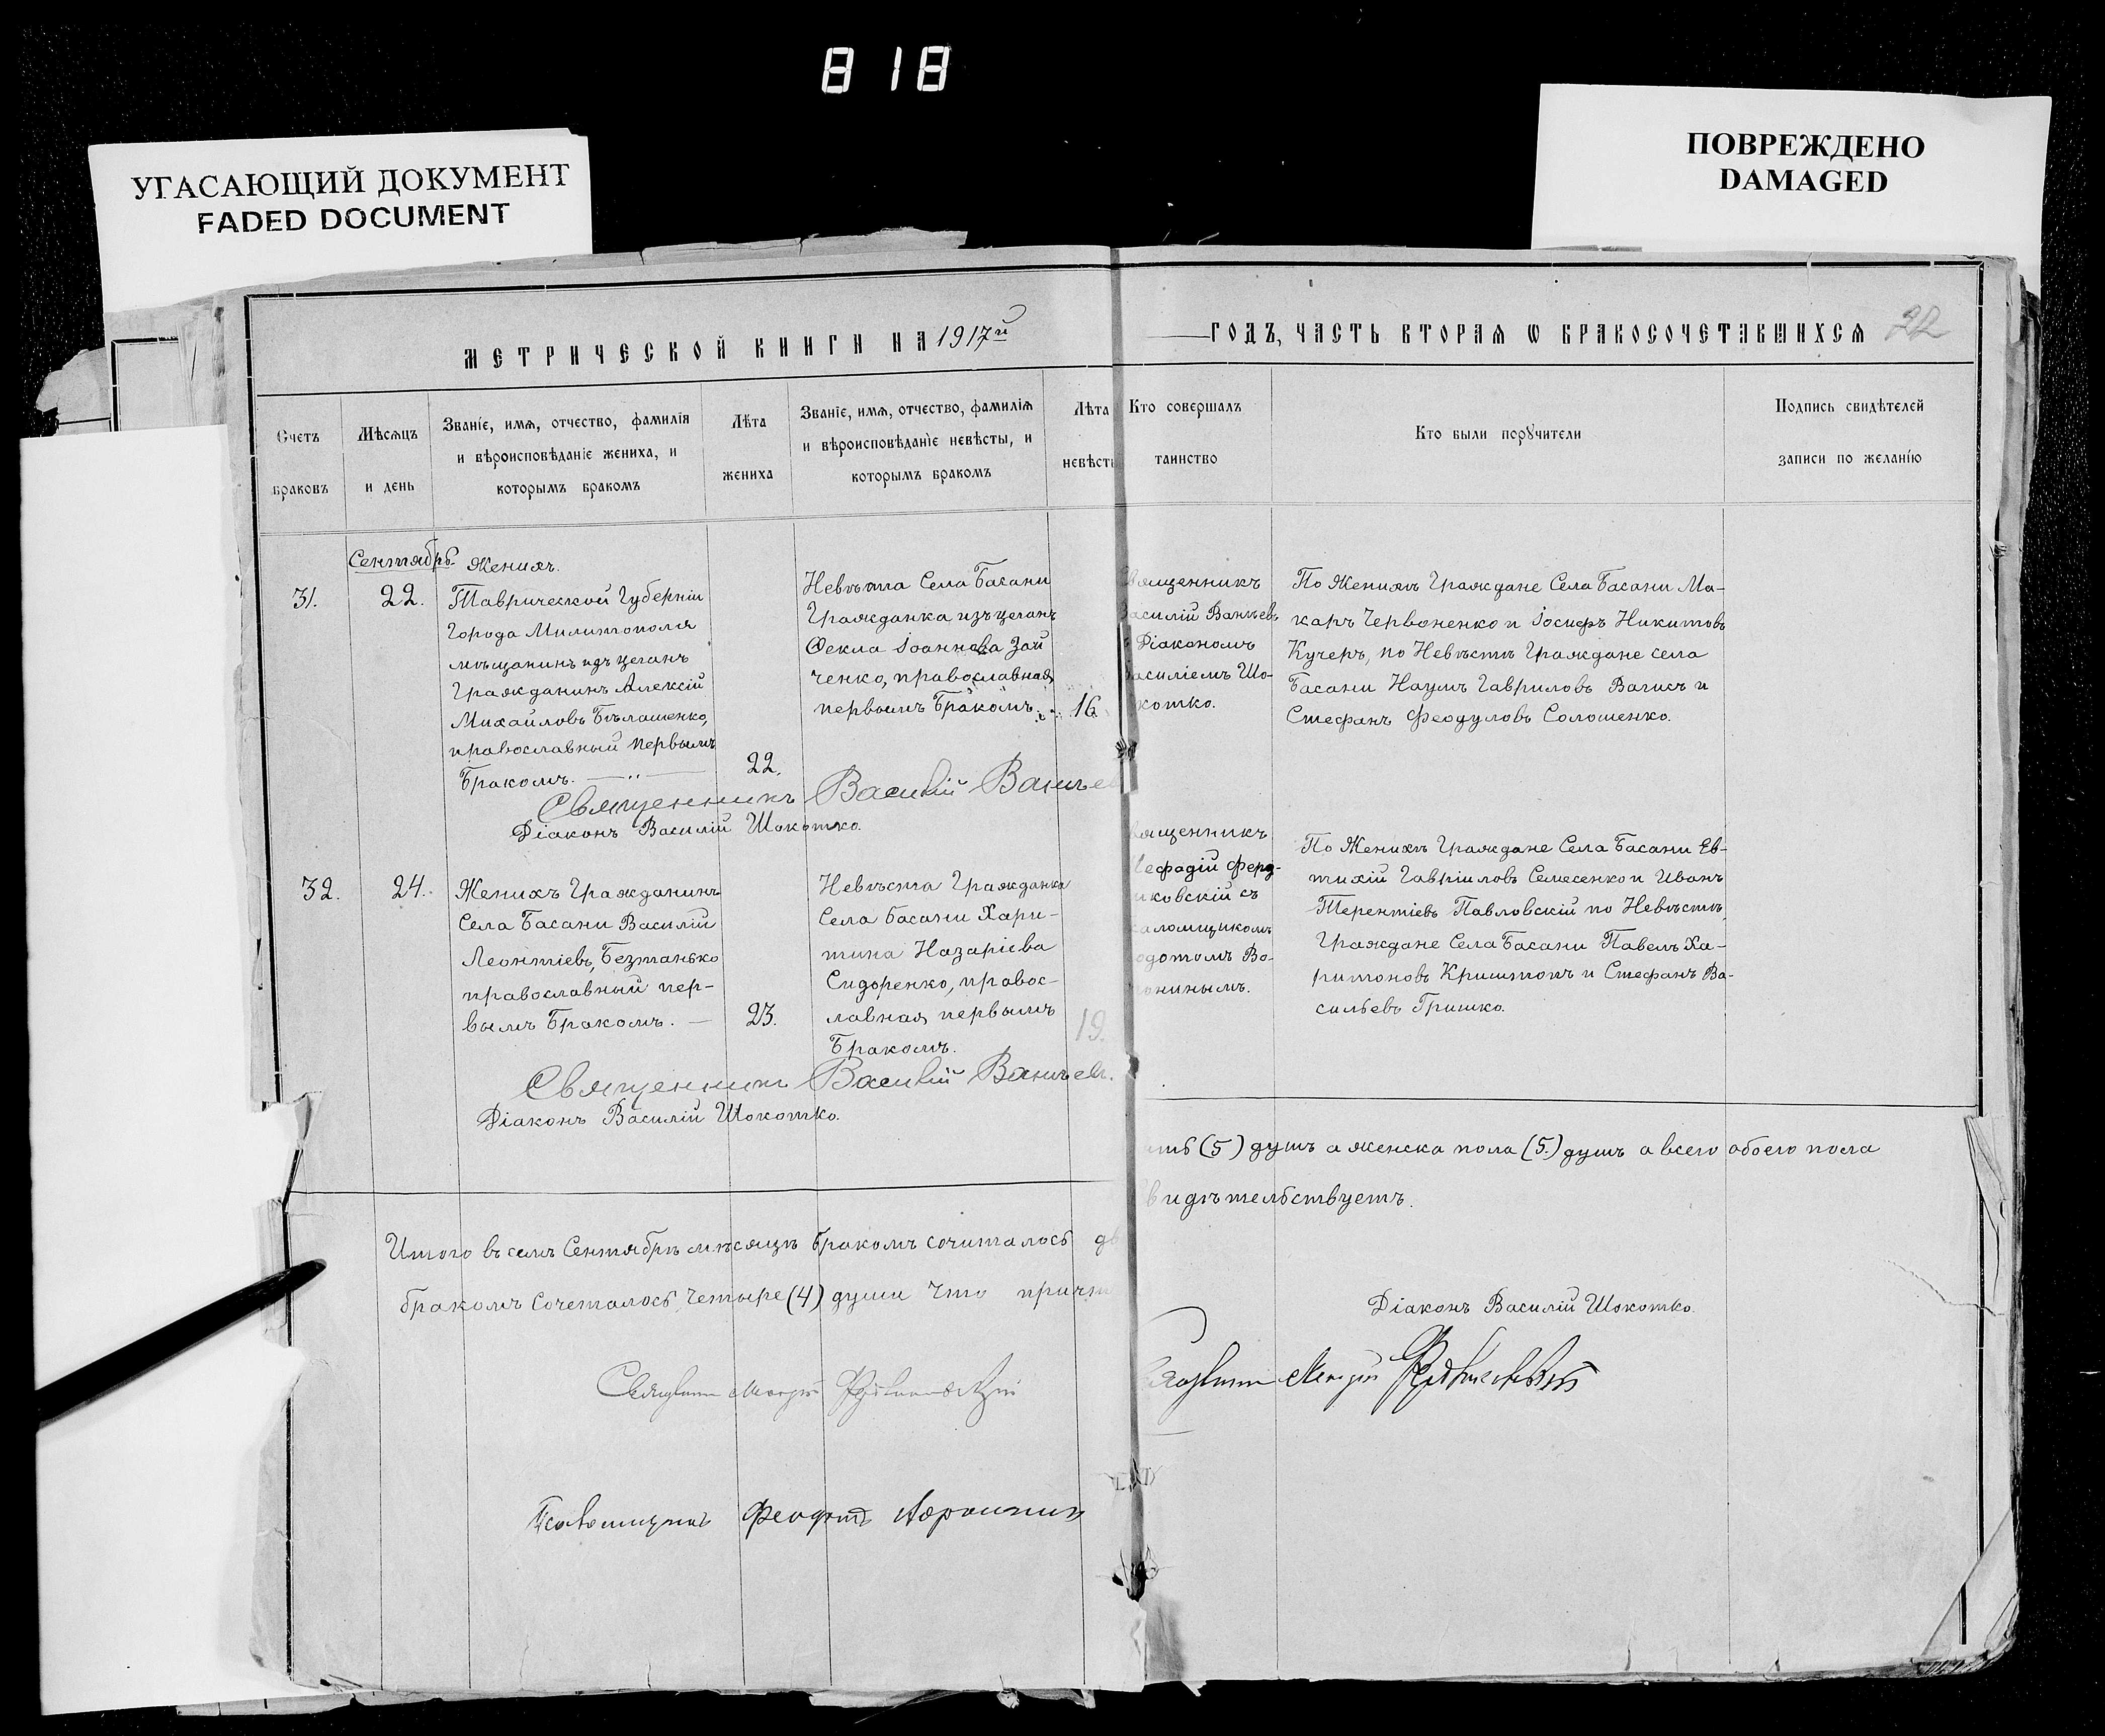 818
УГАСАЮЩИЙ ДОКУМЕНТ
FADED DOCUMENT
ПОВРЕЖДЕНО
DAMAGED
МЕТРИЧЕСКОЙ КНИГИ НА 1917й
ГОДЪ, ЧАСТЬ ВТОРАЯ Ѡ БРАКОСОЧЕТАВШИХСЯ
22
Счетъ
браковъ
Мѣсяцъ
и день
Званіе, имя, отчество, фамилія
и вѣроисповѣданіе жениха, и
которымъ бракомъ
Лѣта
жениха
Званіе, имя, отчество, фамилія
и вѣроисповѣданіе невѣсты, и
которымъ бракомъ
Лѣта
невѣсты
Кто совершалъ
таинство
Кто были порꙋчители
Подпись свидѣтелей
записи по желанію
31.
Сентябрь
22.
Женихъ.
Таврической Губерніи
Города Милитополя
мѣщанинъ изъ цеганъ
Гражданинъ Алексій
Михайловъ Бѣлашенко,
православный первымъ
Бракомъ.
22.
Невѣста Села Басани
Гражданка изъ цеганъ
Ѳекла Іоаннова Зай
ченко, православная
первымъ Бракомъ.
16
вященникъ
асилій Ваньевъ
Діакономъ
асиліемъ Шо-
котко.
По Женихѣ Граждане Села Басани Ма-
каръ Червоненко и Іосифъ Никитовъ
Кучеръ, по Невѣстѣ Граждане села
Басани Наумъ Гавриловъ Вагисъ и
Стефанъ Феодуловъ Солошенко.
Священникъ Василій Ваньев
Діаконъ Василій Шокотко.
32.
24.
Женихъ Гражданинъ
Села Басани Василій
Леонтіевъ, Безтанько
православный пер-
вымъ Бракомъ. —
23.
Невѣста Гражданка
Села Басани Хари-
тина Назаріева
Сидоренко, правос-
лавная первымъ
Бракомъ.
19.
вященникъ
ефодій Ферд-
иковскій съ
аломщикомъ
одотомъ Во-
ониным.
По Женихѣ Граждане Села Басани Ев-
тихій Гавріиловъ Семесенко и Иванъ
Терентіевъ Павловскій по Невѣстѣ,
Граждане Села Басани Павелъ Ха-
ритоновъ Криштопъ и Стефанъ Ва-
сильевъ Гришко.
Священникъ Василій Ваньевъ.
Діаконъ Василій Шокотко.
Итого въ семъ Сентябрѣ мѣсяцѣ бракомъ сочиталось
ть (5) душъ а женска пола (5.) душъ а всего обоего пола
бракомъ Сочеталось, Четыре (4) души Что причт
видѣтельствуетъ.
Діаконъ Василій Шокотко.
Псаломщикъ Феодотъ